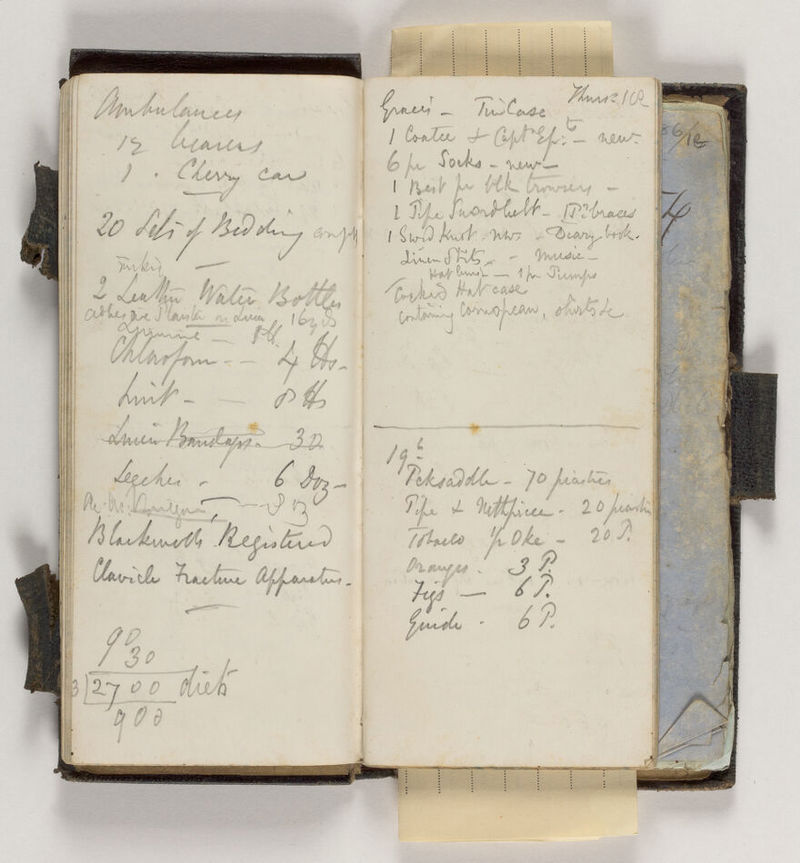 Ambulances
12 bearers
1 . Cherry car
20 Sets of Bedding
2 Leather Water Bottles
adhesive Plaister on Linen 16 yds
Chloroform - - 4 lbs -
Lint - - 8 lbs
Linen Bandages - 30
Leeches - 6 Doz -
3 oz
Blackwoods Registered
Clavicle Fracture Apparatus -
90
30
3 2700 diets
900
Thurs 18
Graces - Tin Case
1 Coatee & Capt Epts - new -
6 pr Socks - new -
1 Best pr blk trowsers -
1 Pipe Swordbelt - 1 Pr braces
1 Sword Knot - new - Diary book -
Linen Shts - - Music -
1 pr Pumps
Cocked Hat case
containing Cornopean, shirts &c
19th
Packsaddle - 70 piastres
Pipe & Mthpiece - 20 piastres
Tobacco 1/2 Oke - 20 P.
Oranges - 3 P.
Figs - 6 P.
Guide - 6 P.